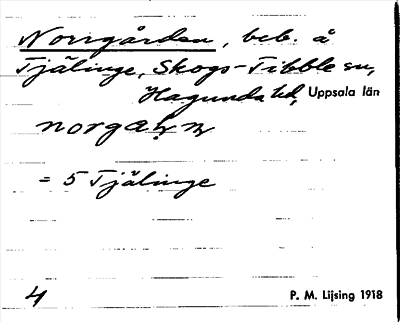 Norrgården, beb. å
Tjälinge, Skogs-Tibble sn,
Hagunda hd, Uppsala län
= 5 Tjälinge
4
P. M. Lijsing 1918